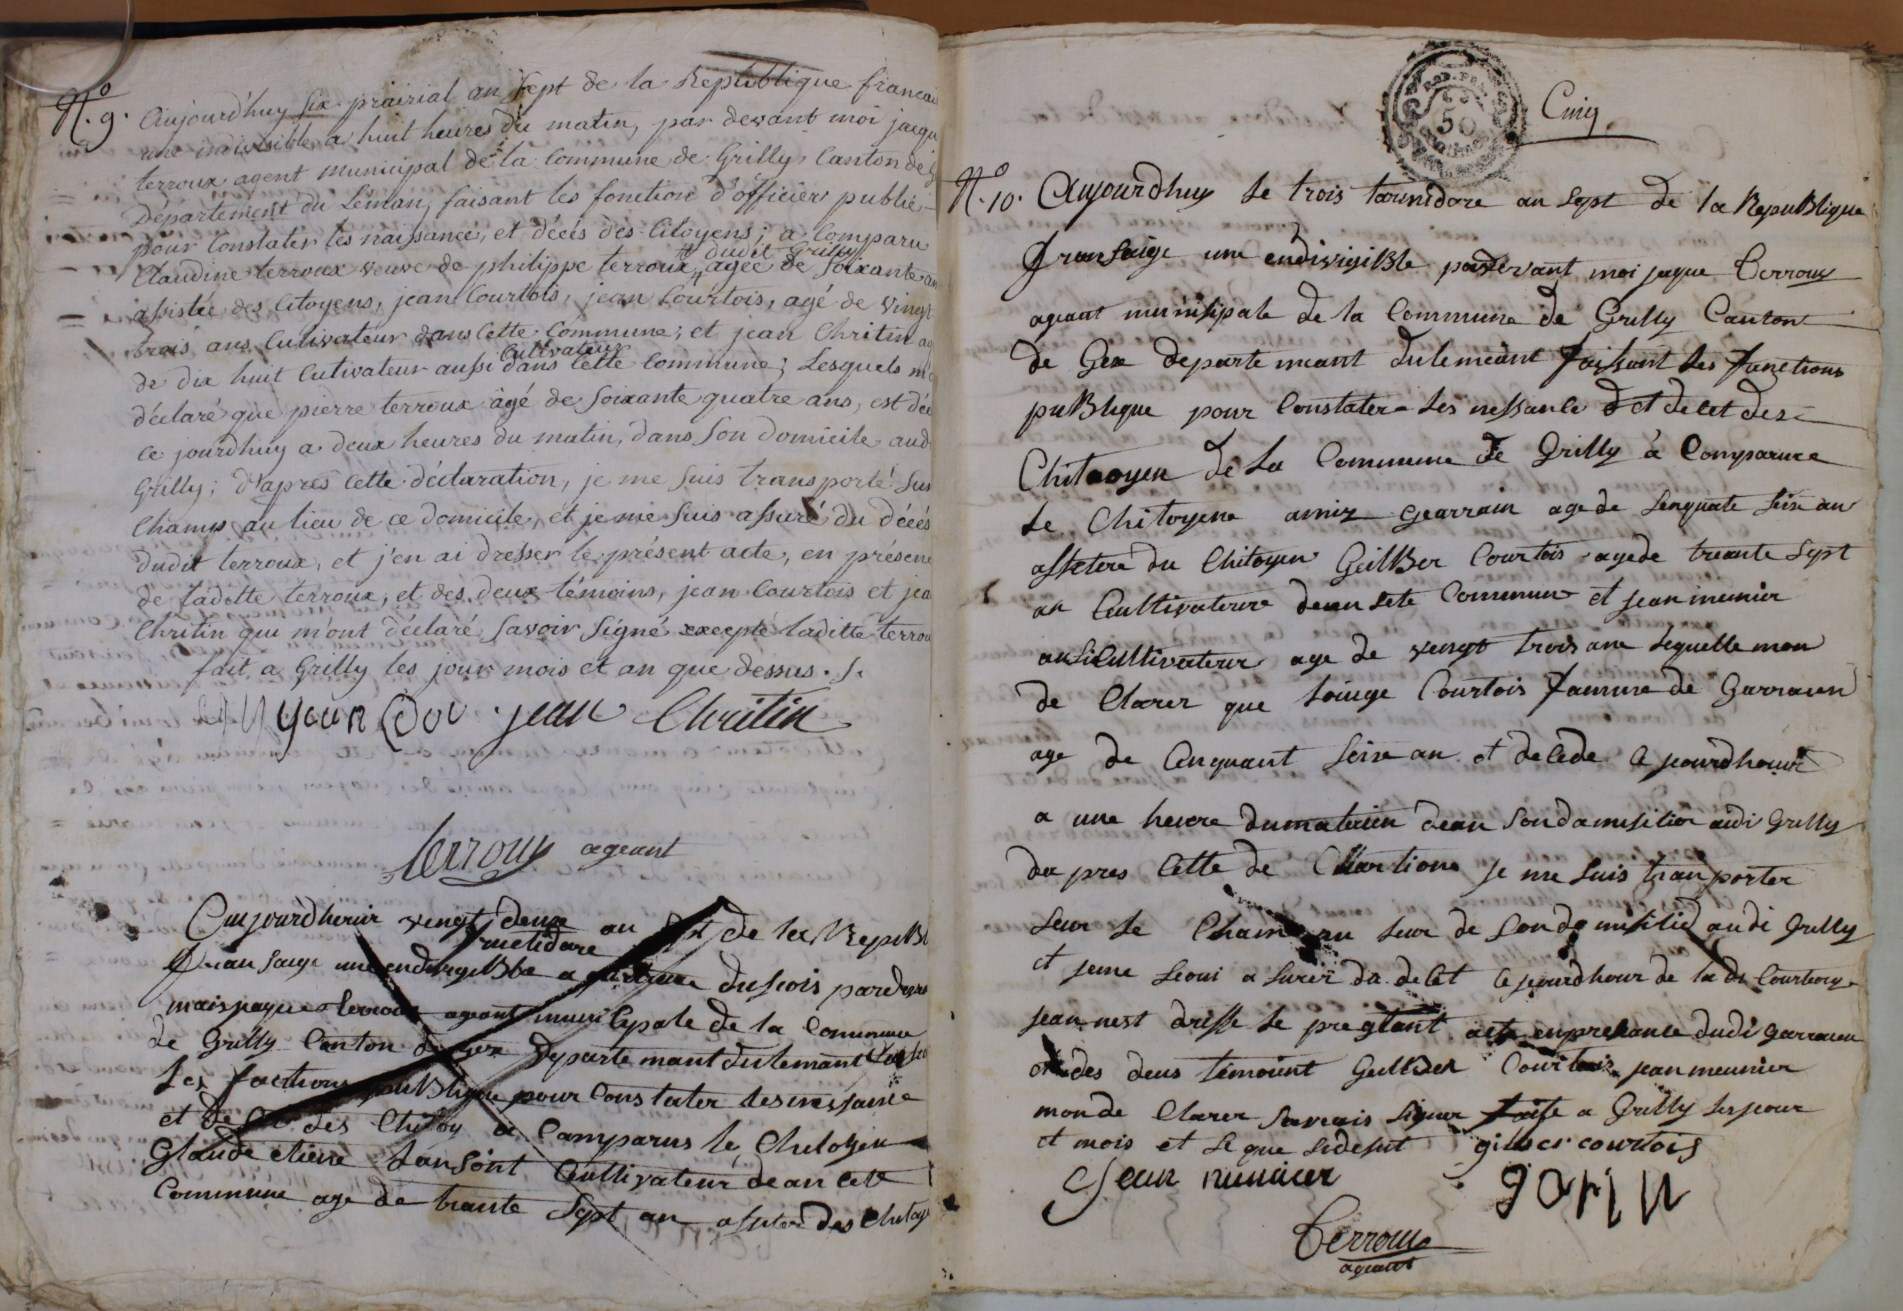 N.º 9. Aujourd'huy six prairial an sept de la Republique francai
une indivisible a huit heures du matin, par devant moi jacqu
terroux agent municipal de la Commune de Grilly Canton de
Département du Léman, faisant les fonction d'officier public
pour Constater les naissance, et décès des Citoyens; a Comparu
dudit Grilly
Claudine terroux veuve de philippe terroux, agée de soixante an
assistée des Citoyens, jean Courtois, jean Courtois, agé de vingt
trois ans Cultivateur dans Cette Commune; et jean Chritin ag
Cultivateur
de dix huit Cutivateur aussi dans Cette Commune; Lesquels m'o
déclaré que pierre terroux âgé de soixante quatre ans, est déc
ce jourdhuy a deux heures du matin, dans son domicile aud
Grilly; d'après Cette déclaration, je me suis transporté sur
Champ au lieu de ce domicile, et je me suis assuré du décés
dudit terroux, et j'en ai dresser le présent acte, en présenc
de ladotte terroux, et des deux témoins, jean Courtois et jea
Chritin qui m'ont déclaré savoir signé excepté laditte terrou
fait a Grilly les jour mois et an que dessus. /.
jean Cou jean Chritin
terroux ageant
Aujourdheuir vengt deux an sept de la Republ
fructidore
fransaige une endivigeBle a du soir pardevan
moi jaque terroux ageant municipale de la Commune
de Grilly Canton de Gex Departemant dulemant
les factions puBlique pour Constater les nessance
et de Cet des Chitoy a Comparus le Chitoyen
Glaude etiene Cultivateur dean cete
Commune age de trante sept an assiter des Chitoy
Cinq.
N.º 10. Aujourdhuy le trois termidore an sept de la RepuBlique
fransaige une endivigiBle pardevant moi jaque Terroux
ageant munisipale de la Commune de Grilly Canton
de Gex departemeant dulemeant faissant les fonctions
puBlique pour Constater les nessance et decet des
Chitoyen de la Commune de Grilly a Comparure
le Chitoyene amiz gearrain age de senquate seix an
assetere du Chitoyen GeilBer Courtois age de treante sept
an Cultivatere dean sete Commune et jean meunier
ausi Cultivateur age de vengt trois ans lequelle mon
de Clarer que Louige Courtois famme de Garraien
age de Cenquant seix an et decede ce jeourdhouir
a une heure dumateiin dean son damisilier audi Grilly
da pres Cette de Clartione je me suis tranporter
seur le Cham au seur de son domisilie audi Grilly
et jeme seoui a surér du decet ce jeourdhour de la di Courtoi
jean nest drisse le pregeant acte enpresance dudi garraien
et des deus temoient GeilBer Courtois jean meunier
mon de Clarer savoir signer faite a Grilly les jour
et mois et le que sidesut gilber courtois
jean munier garin
Terroux
ageant